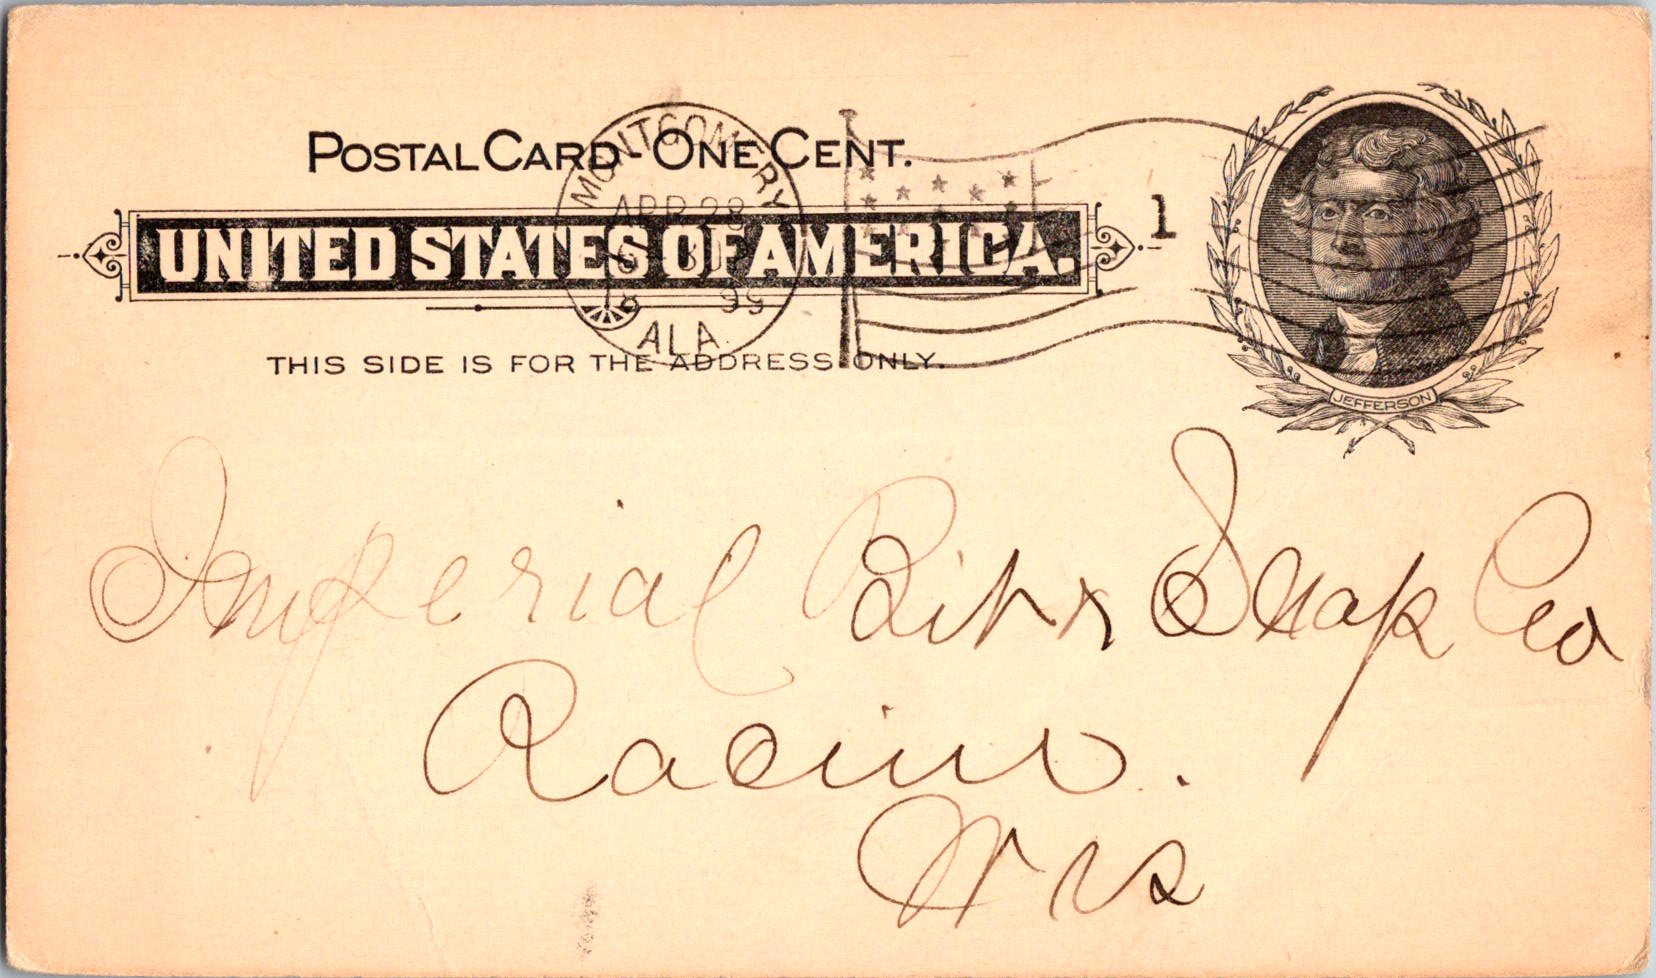 POSTAL CARD - ONE CENT.
UNITED STATES OF AMERICA.
THIS SIDE IS FOR THE ADDRESS ONLY.
MONTGOMERY
APR 28
ALA.
1
JEFFERSON
Imperial Bit & Snap Co
Racine.
Wis